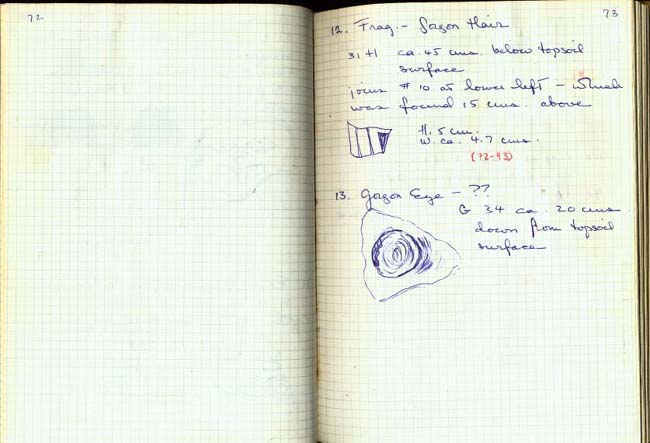 72
73
12. Frag. - Gorgon Hair
31+1 ca. 45 cms. below topsoil
surface
joins # 10 at lower left - which
was found 15 cms. above
H. 5 cm.
W. ca. 4.7 cms.
(72-43)
13. Gorgon Eye - ??
G 34 ca. 20 cms
down from topsoil
surface